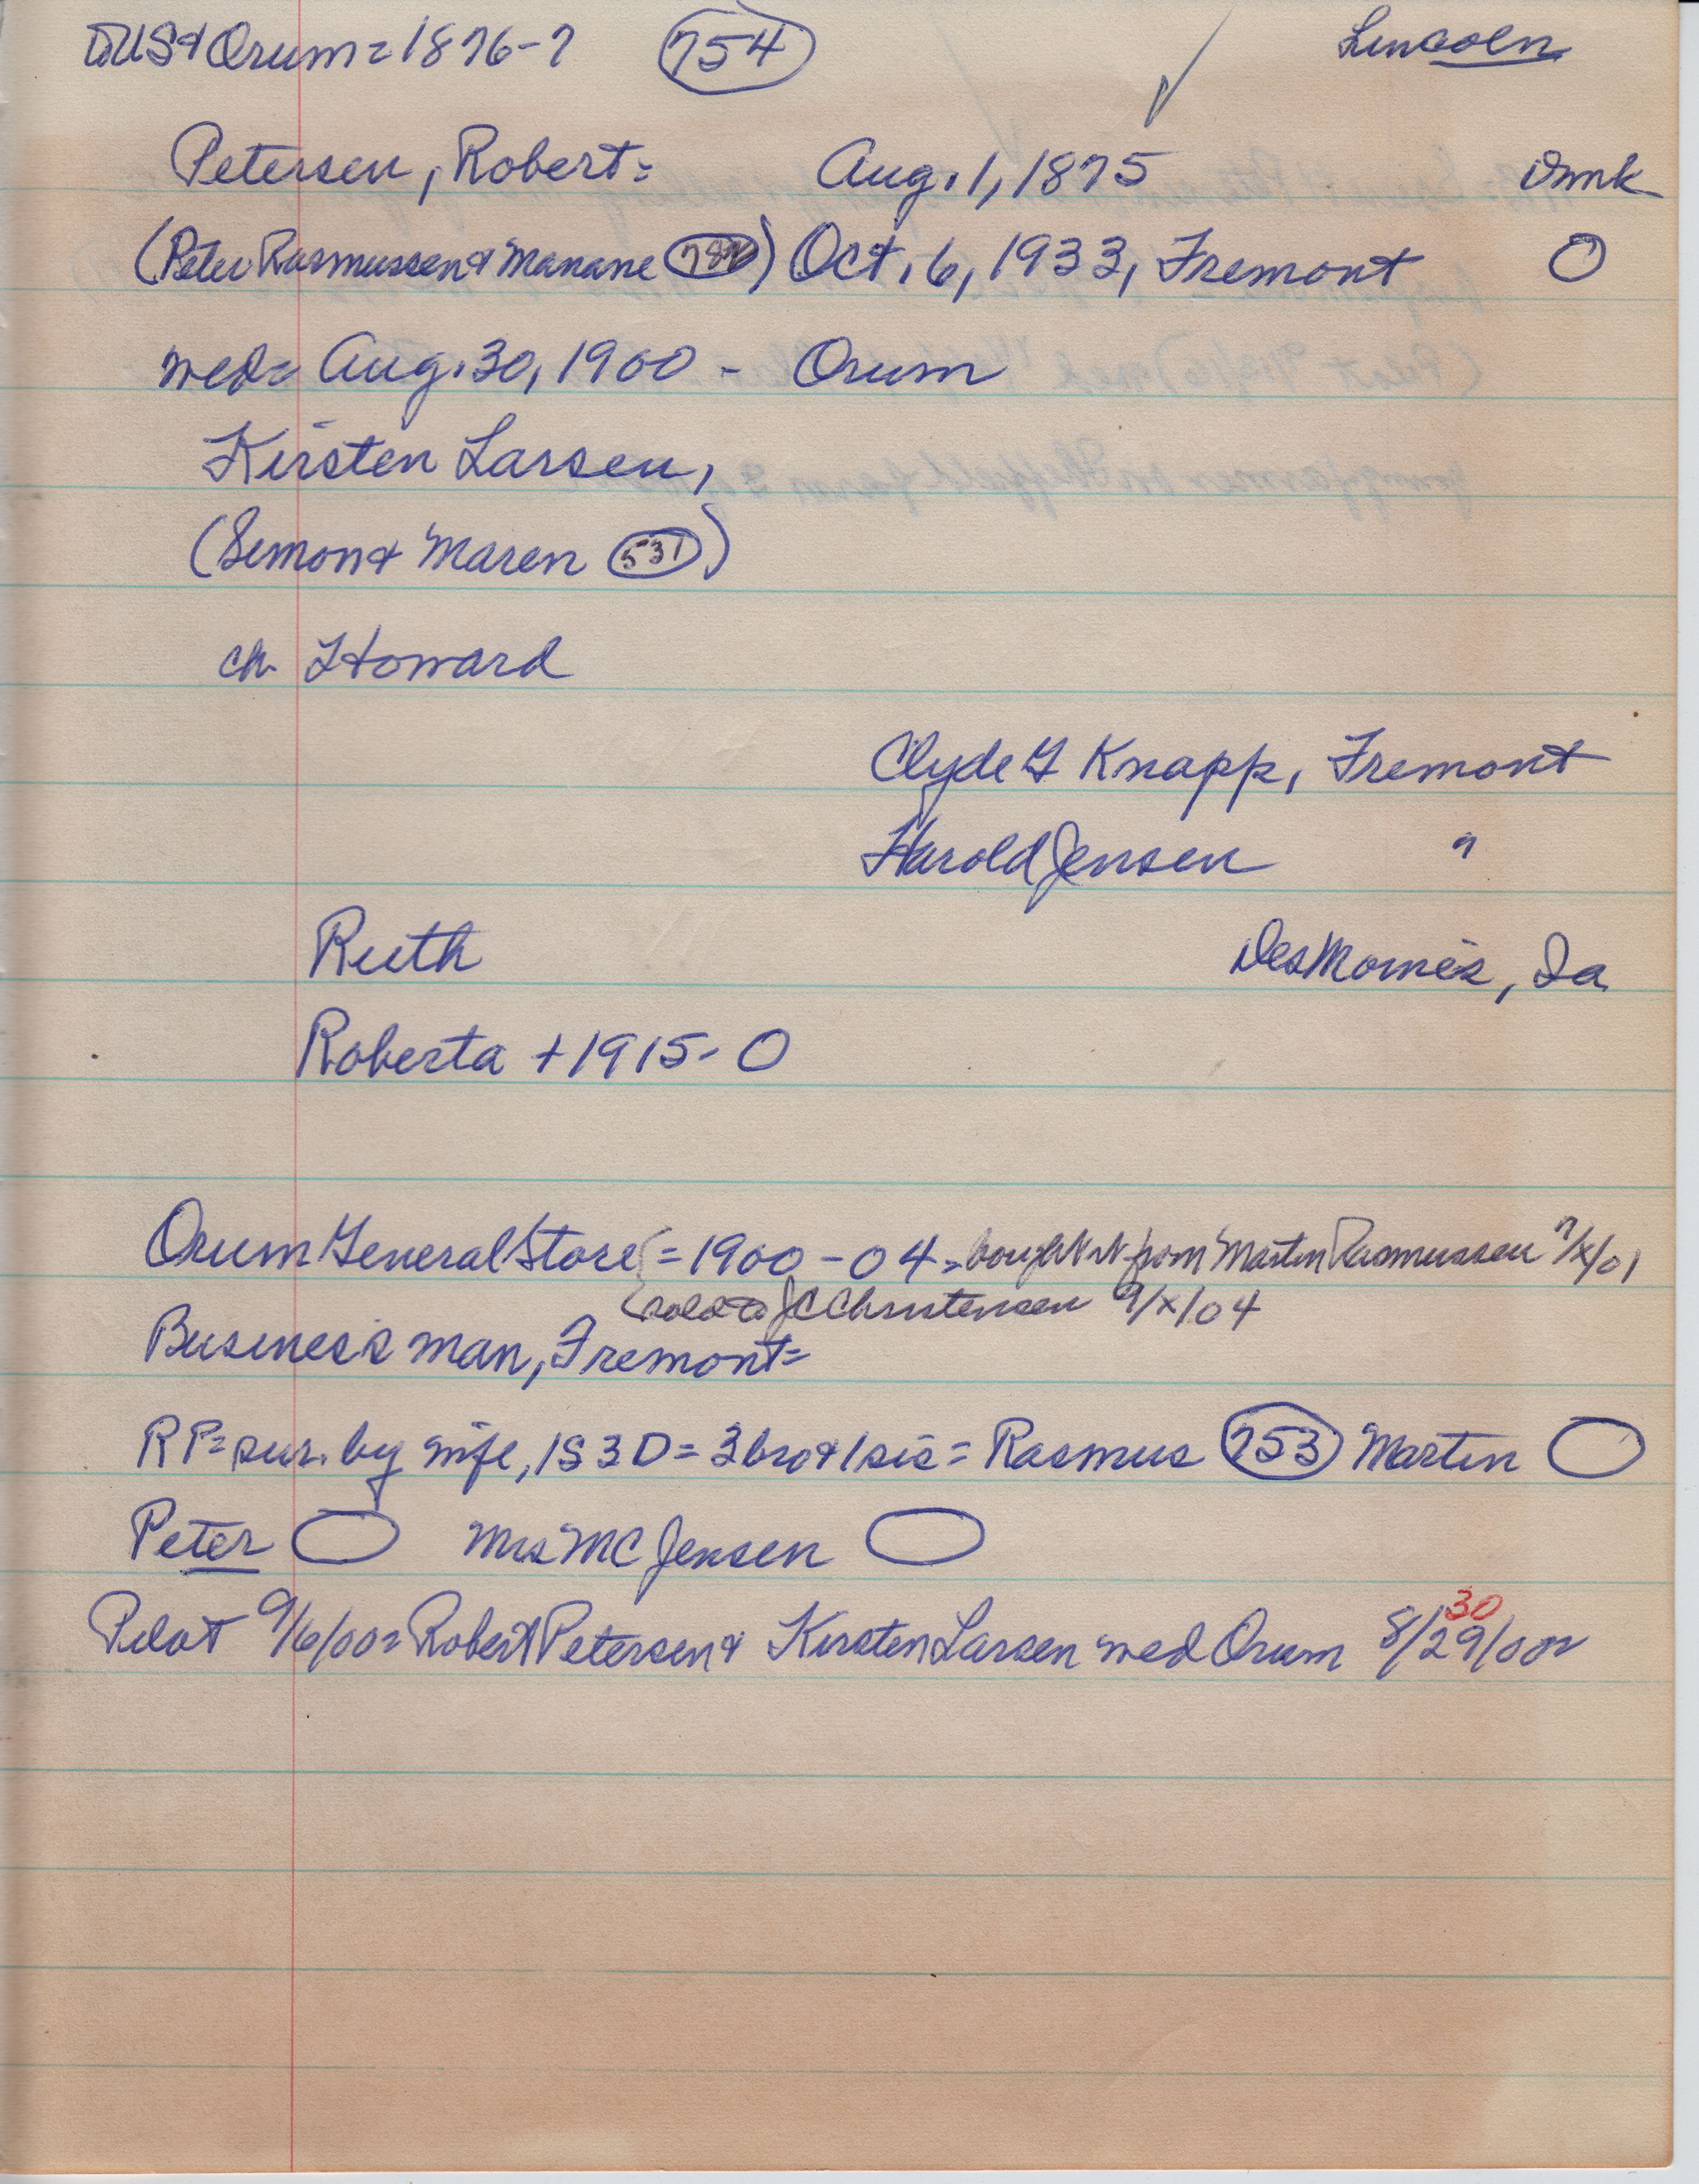 to US & Orum = 1876-7 754 Lincoln
Petersen, Robert = Aug. 1, 1875 Dmk
(Peter Rasmussen & Manane) Oct. 6, 1933, Fremont O
wed = Aug. 30, 1900 - Orum
Kirsten Larsen,
(Simon & Maren 531)
ch Howard
Clyde G Knapp, Fremont
Harold Jensen "
Ruth Des Moines, Ia
Roberta + 1915 - O
Orum General Store = 1900 - 04 = bought it from Martin Rasmussen 7/x/01
sold to JC Christensen 9/x/04
Business man, Fremont =
RP = sur. by wife, 1S 3D = 3 bro & 1 sis = Rasmus 753 Martin
Peter Mrs MC Jensen
Pilot 9/6/00 = Robert Petersen & Kirsten Larsen wed Orum 8/29/00 =
30